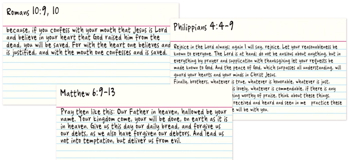 Romans 10:9, 10
because, if you confess with your mouth that Jesus is Lord
and believe in your heart that God raised him from the
dead, you will be saved. For with the heart one believes and
is justified, and with the mouth one confesses and is saved.
Philippians 4:4-9
Rejoice in the Lord always; again I will say, rejoice. Let your reasonableness be
known to everyone. The Lord is at hand; do not be anxious about anything, but in
everything by prayer and supplication with thanksgiving let your requests be
made known to God. And the peace of God, which surpasses all understanding, will
guard your hearts and your minds in Christ Jesus.
Finally, brothers, whatever is true, whatever is honorable, whatever is just,
is lovely, whatever is commendable, if there is any
ing worthy of praise, think about these things.
received and heard and seen in me practice these
will be with you.
Matthew 6:9-13
Pray then like this: Our Father in heaven, hallowed be your
name. Your kingdom come, your will be done, on earth as it is
in heaven. Give us this day our daily bread, and forgive us
our debts, as we also have forgiven our debtors. And lead us
not into temptation, but deliver us from evil.